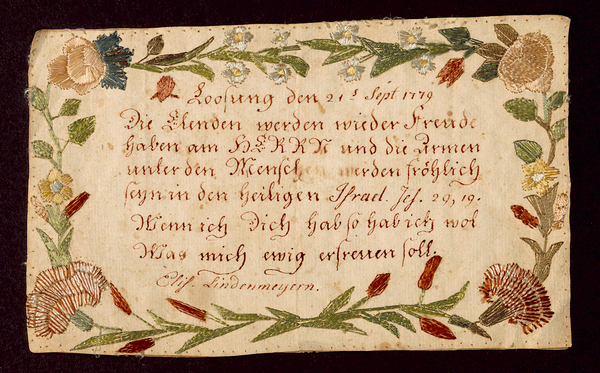 Loosung den 21t Sept 1779
Die Elenden werden wieder Freude
haben am HERRN und die Armen
unter den Menschen werden fröhlich
seyn in den heiligen Israel. Jes. 29, 19.
Wenn ich Dich hab so hab ich wol
Was mich ewig erfreuen soll.
Elis. Lindenmeyern.